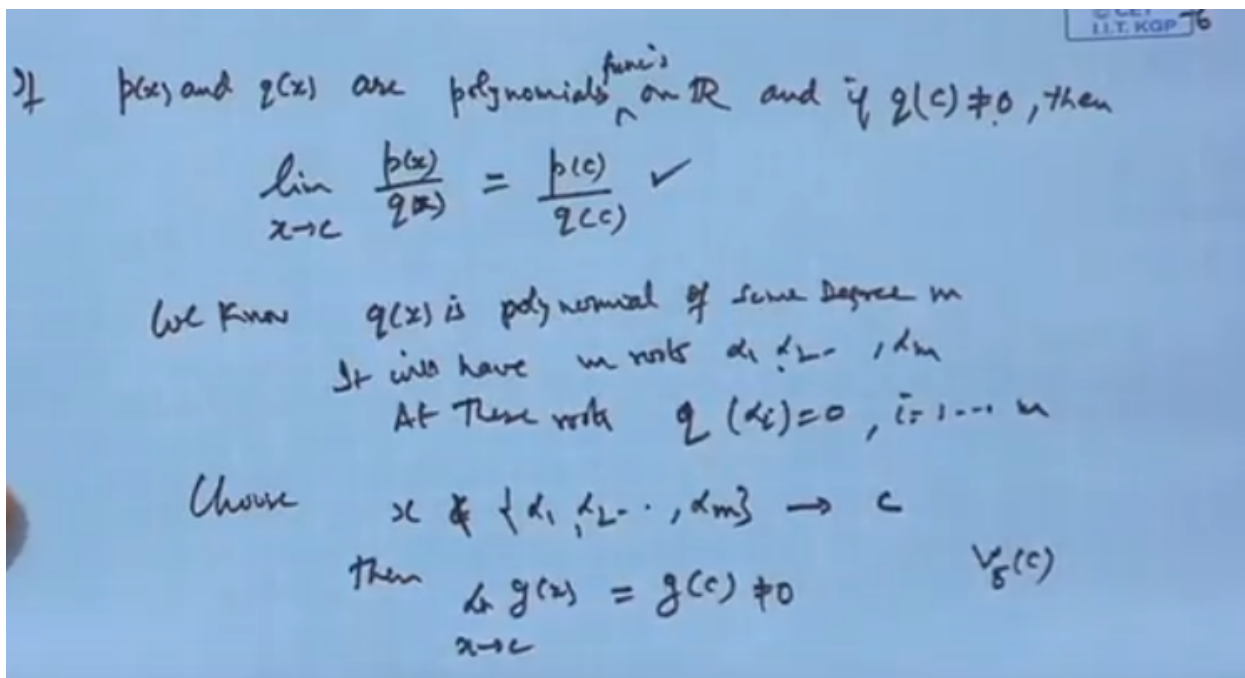 © CET
I.I.T. KGP 76
If p(x) and q(x) are polynomials func's on ℝ and if q(c) ≠ 0, then
lim x→c p(x)/q(x) = p(c)/q(c) ✓
We know q(x) is polynomial of some Degree m
It will have m roots α1, α2 -- , αm
At These roots q(αi) = 0, i = 1 --- m
Choose x ∉ {α1, α2 - · , αm} → c
Then Lt x→c g(x) = g(c) ≠ 0 Vδ(c)